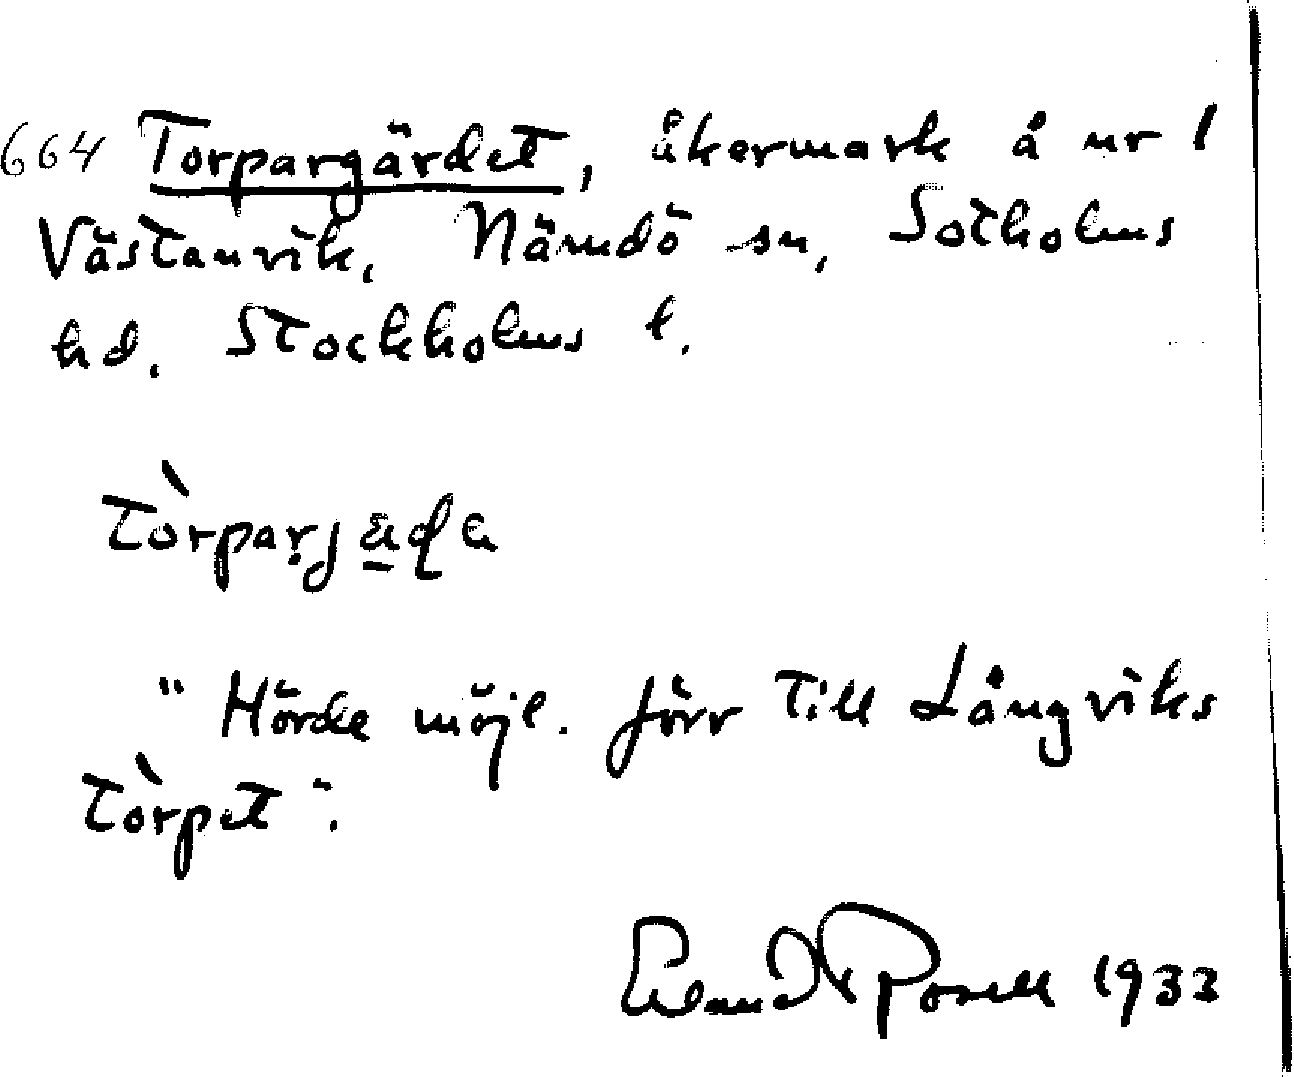 664 Torpargärdet, åkermark å nr 1
Västanvik, Nämdö sn, Sotholms
hd. Stockholms l.
tòrparjäḍa
"Hörde möjl. förr till Långviks
tòrpet".
Rosell 1933